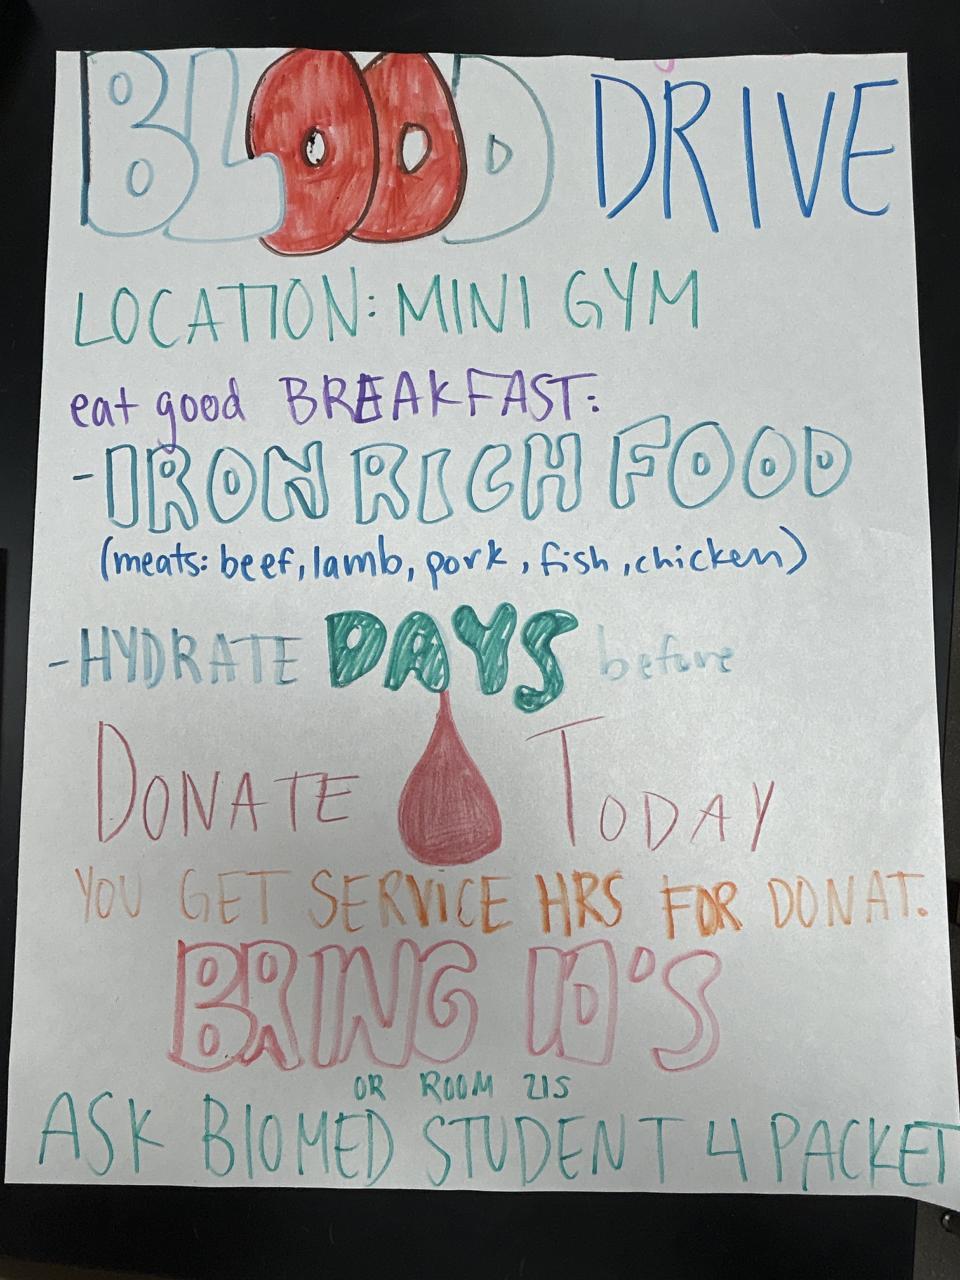 BLOOD DRIVE
LOCATION: MINI GYM
eat good BREAKFAST:
- IRON RICH FOOD
(meats: beef, lamb, pork, fish, chicken)
- HYDRATE DAYS before
DONATE TODAY
YOU GET SERVICE HRS FOR DONAT.
BRING ID'S
OR ROOM 215
ASK BIOMED STUDENT 4 PACKET